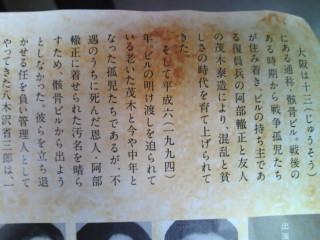 大阪は十三(じゅうそう)
にある通称、骸骨ビル。戦後の
ある時期から戦争孤児たち
が住み着き、ビルの持ち主であ
る復員兵の阿部轍正と友人
の茂木泰造により、混乱と貧
しさの時代を育て上げられて
きた。
そして平成六(一九九四)
年。ビルの明け渡しを迫られて
いる老いた茂木と今や中年と
なった孤児たちであるが、不
遇のうちに死んだ恩人・阿部
轍正に着せられた汚名を晴ら
すため、骸骨ビルから出よう
としなかった。彼らを立ち退
かせる任を負い管理人として
やってきた八木沢省三郎は、一
出演